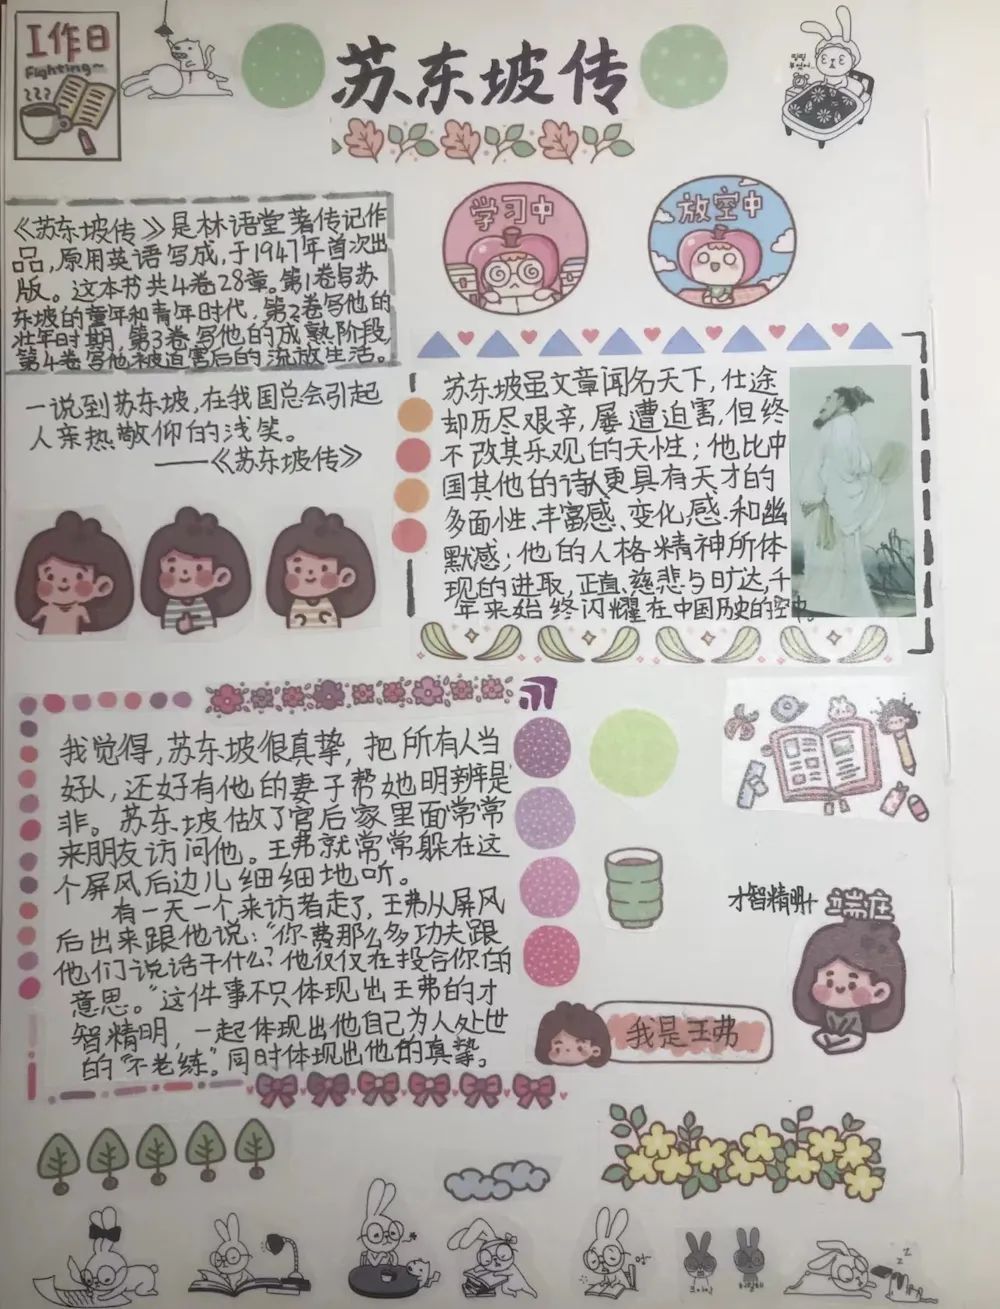 工作日
Fighting~
苏东坡传
学习中
放空中
《苏东坡传》是林语堂著传记作
品,原用英语写成,于1947年首次出
版。这本书共4卷28章。第1卷写苏
东坡的童年和青年时代,第2卷写他的
壮年时期,第3卷写他的成熟阶段,
第4卷写他被迫害后的流放生活。
一说到苏东坡,在我国总会引起
人亲热敬仰的浅笑。
——《苏东坡传》
苏东坡虽文章闻名天下,仕途
却历尽艰辛,屡遭迫害,但终
不改其乐观的天性;他比中
国其他的诗人更具有天才的
多面性、丰富感、变化感和幽
默感;他的人格精神所体
现的进取,正直、慈悲与旷达,千
年来始终闪耀在中国历史的空中。
我觉得,苏东坡很真挚,把所有人当
好人,还好有他的妻子帮她明辨是
非。苏东坡做了官后家里面常常
来朋友访问他。王弗就常常躲在这
个屏风后边儿细细地听。
有一天一个来访者走了,王弗从屏风
后出来跟他说:“你费那么多功夫跟
他们说话干什么?他仅仅在投合你的
意思。”这件事不只体现出王弗的才
智精明,一起体现出他自己为人处世
的“不老练”。同时体现出他的真挚。
才智精明
端庄
我是王弗